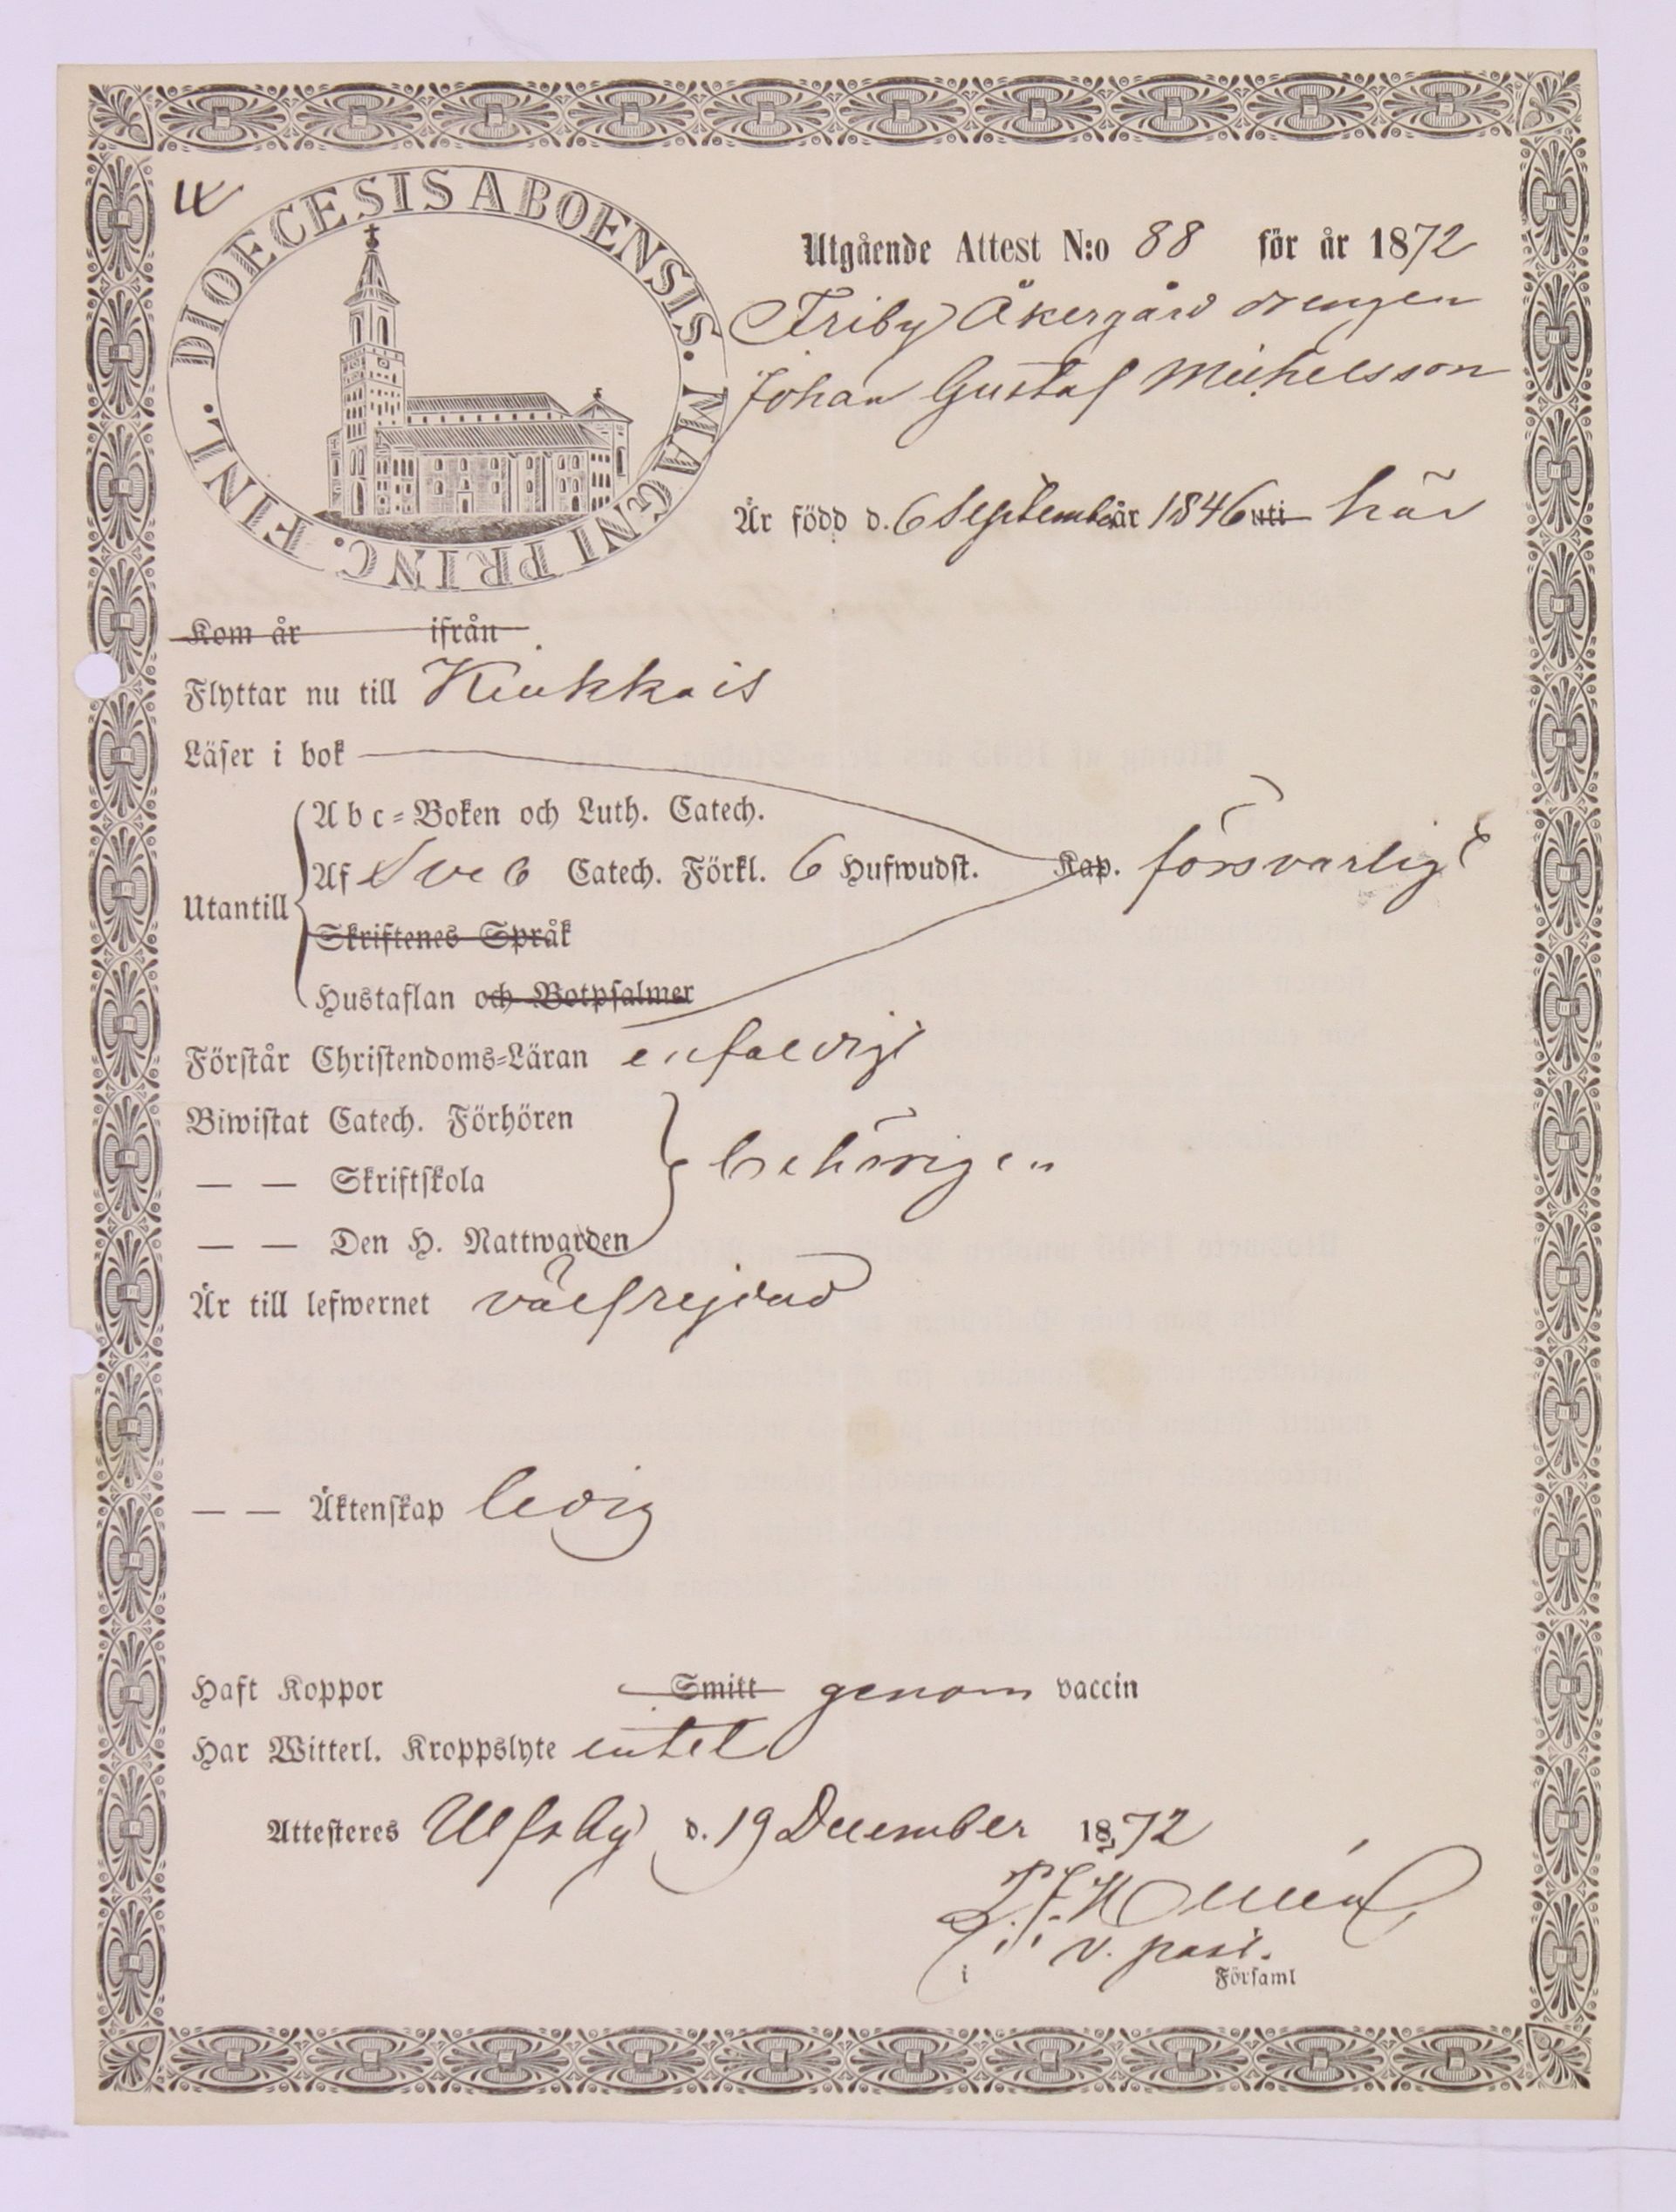 DIOECESIS ABOENSIS. MAGNI PRINC. FINL.
Utgående Attest N:o 88 för år 1872
Friby Åkergård drengen
Johan Gustaf Michelsson
Är född d. 6 September år 1846 uti här
Kom år ifrån
Flyttar nu till Kiukkais
Läser i bok
Abc-Boken och Luth. Catech.
Utantill Af Sveb Catech. Förkl. 6 Hufwudst. Kap. försvarligt
Skriftenes Språk
Hustaflan och Botpsalmer
Förstår Christendoms-Läran enfaldigt
Biwistat Catech. Förhören
— — Skriftskola behörigen
— — Den H. Nattwarden
Är till lefwernet välfrejdad
— — Äktenskap ledig
Haft Koppor Smitt genom vaccin
Har Witterl. Kroppslyte intet
Attesteres Ulfsby d. 19 December 1872
v. past.
i Församl